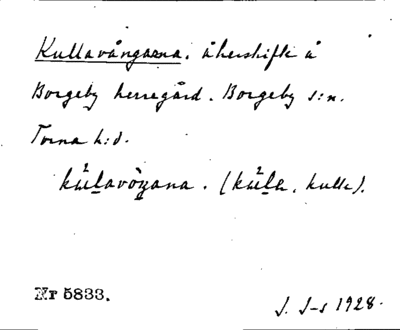 Kullavångarna. åkerskifte å
Borgeby herregård. Borgeby s:n.
Torna h:d.
kùlavòŋana. (kùlɐ, kulle).
Nr 5833.
J. J-s 1928.